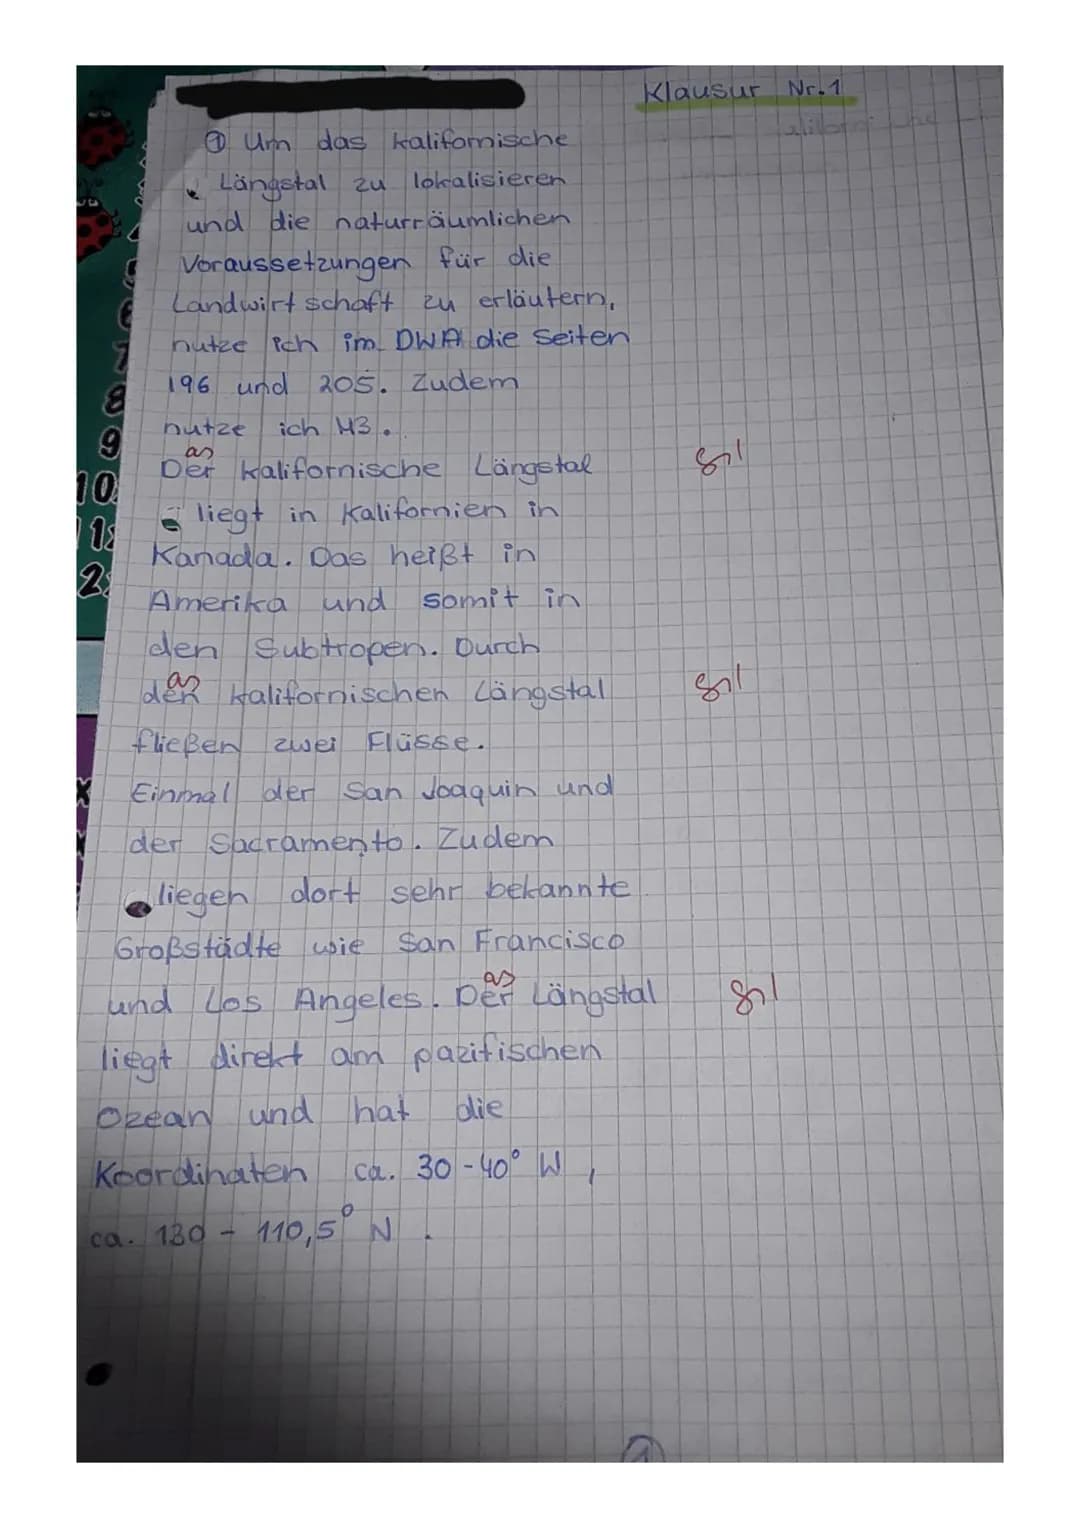 Klausur Nr. 1
① Um das kalifornische
Längstal zu lokalisieren
und die naturräumlichen
Voraussetzungen für die
Landwirtschaft zu erläutern,
nutze ich im DWA die Seiten
196 und 205. Zudem
nutze ich M3.
as
Der kalifornische Längstal
liegt in Kalifornien in
Kanada. Das heißt in
Amerika und somit in
den Subtropen. Durch
as
den kalifornischen Längstal
fließen zwei Flüsse.
Einmal der San Joaquin und
der Sacramento. Zudem
liegen dort sehr bekannte
Großstädte wie San Francisco
as
und Los Angeles. Der Längstal
liegt direkt am pazifischen
Ozean und hat die
Koordinaten ca. 30-40° W,
ca. 130 - 110,5° N.
5
6
7
8
9
10
11
2